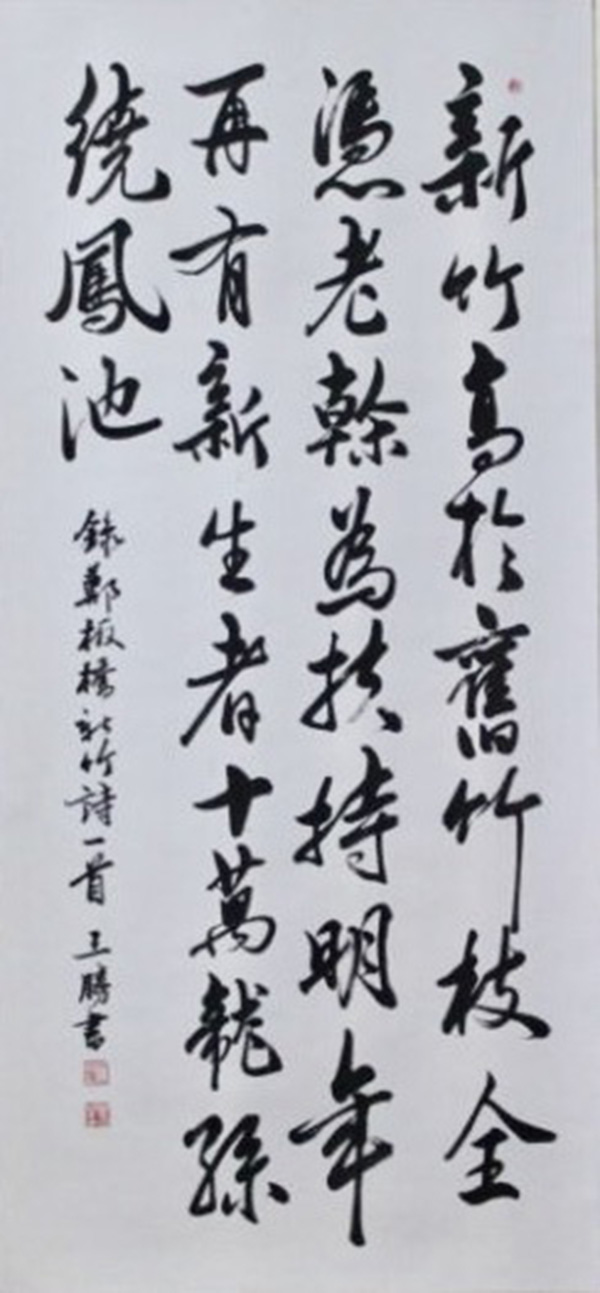 新竹高於舊竹枝全
憑老幹為扶持明年
再有新生者十萬龍孫
繞鳳池
錄鄭板橋新竹詩一首 王勝書